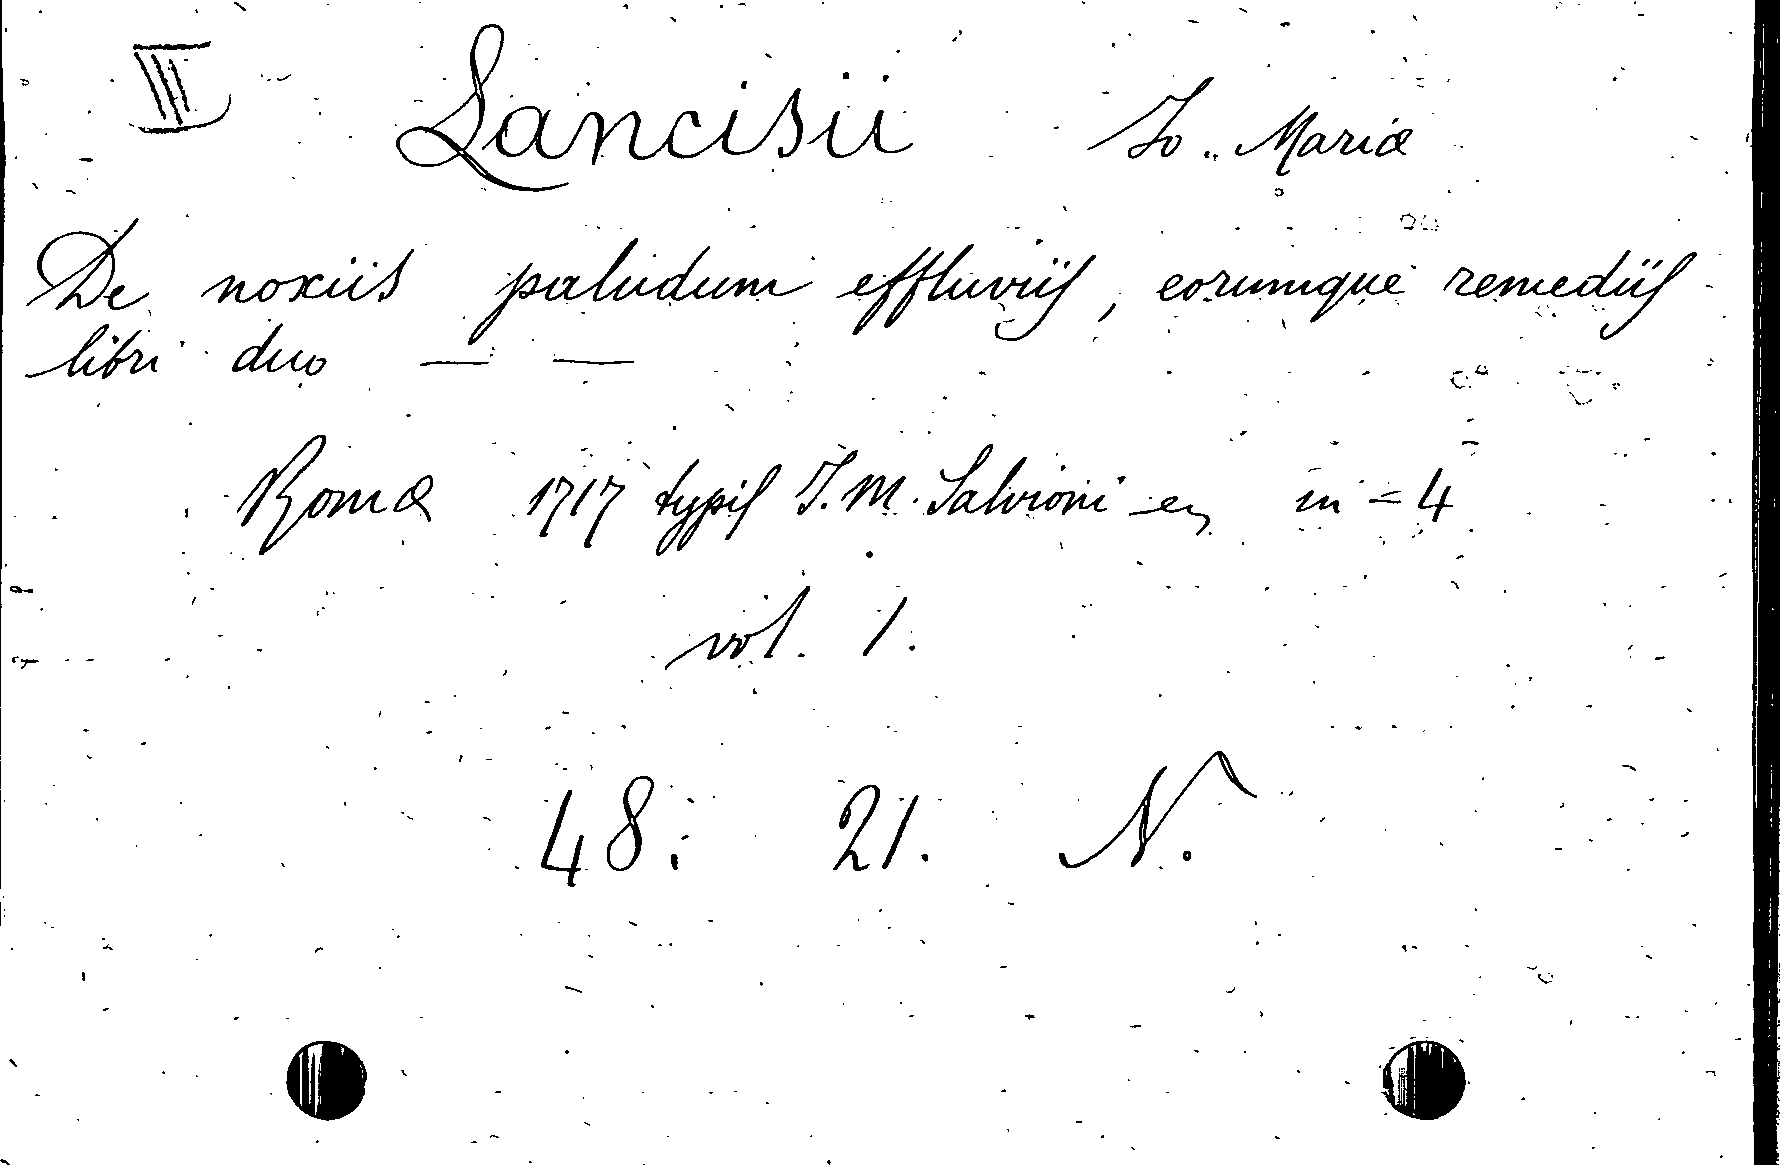 III Lancisii Jo. Mariæ
De noxiis paludum effluviis, eorumque remediis
libri duo — —
Romæ 1717 typis J. M. Salvioni in = 4
vol. 1.
48. 21. N.